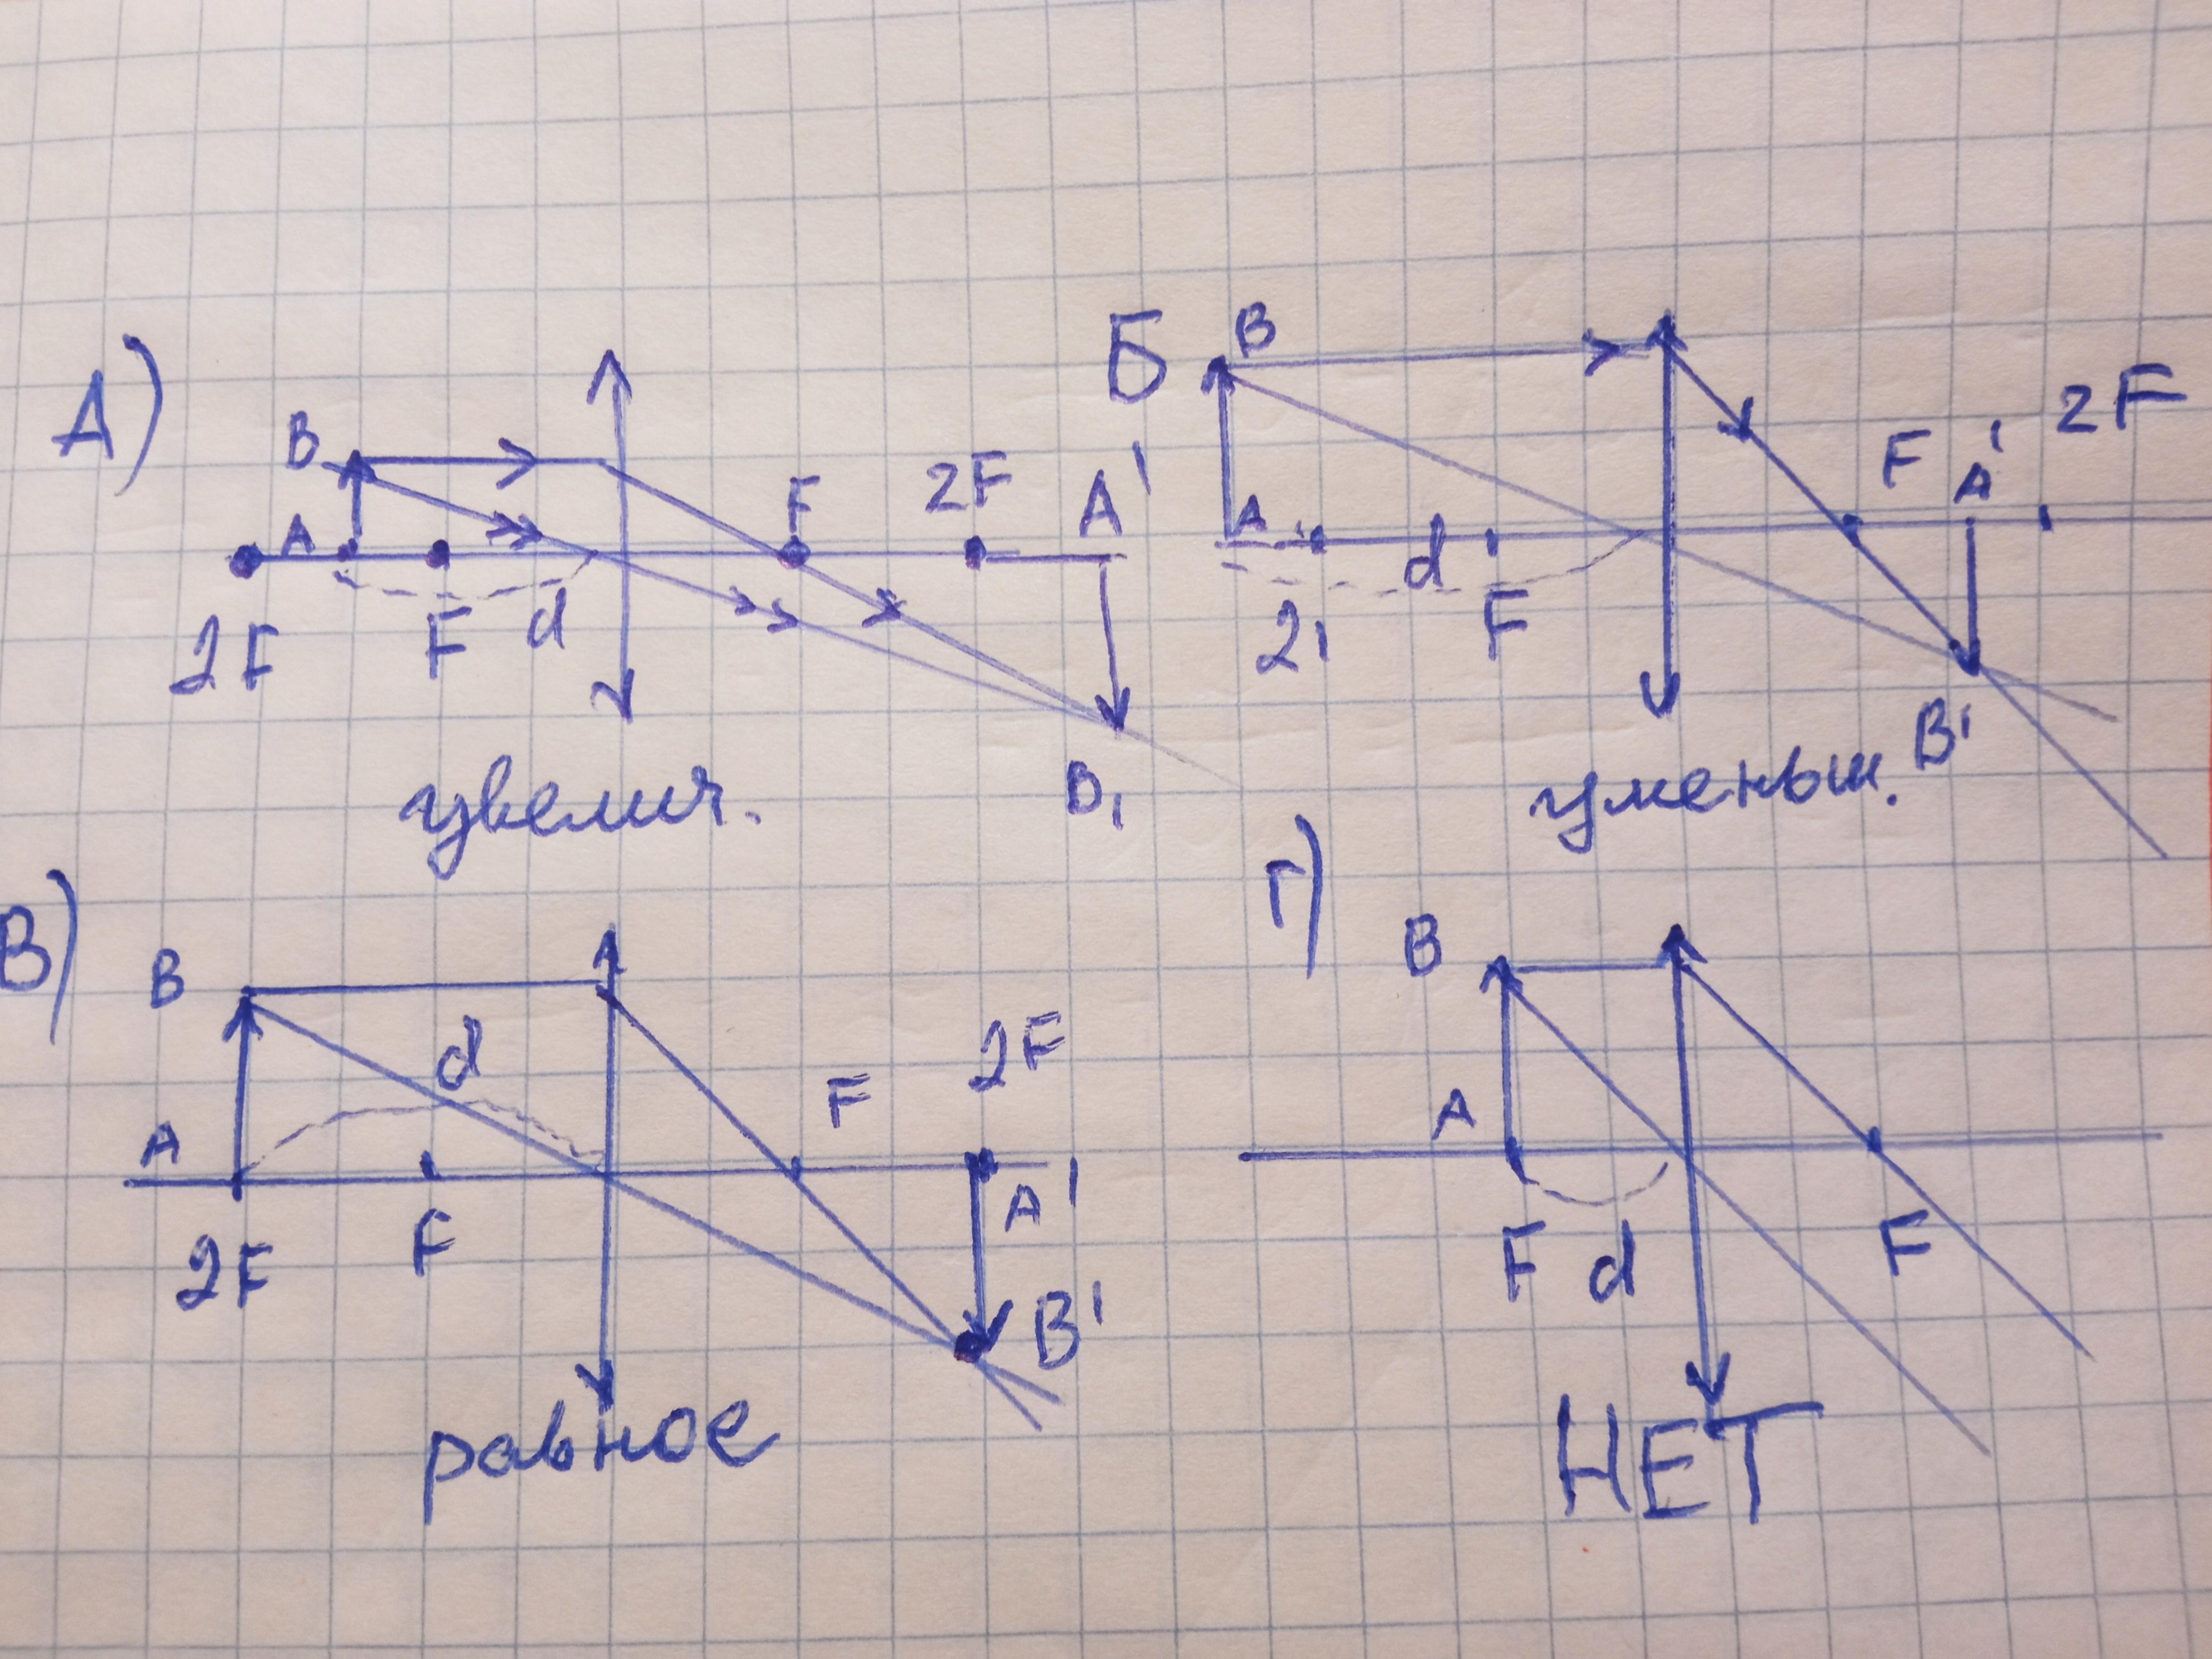 А)
B
A
2F
F
d
F
2F
A'
B₁
увелич.
Б
B
A
2₁
d
F
F
A'
2F
B'
уменьш.
В)
B
A
d
2F
F
F
2F
A'
B'
равное
Г)
B
A
F
d
F
НЕТ